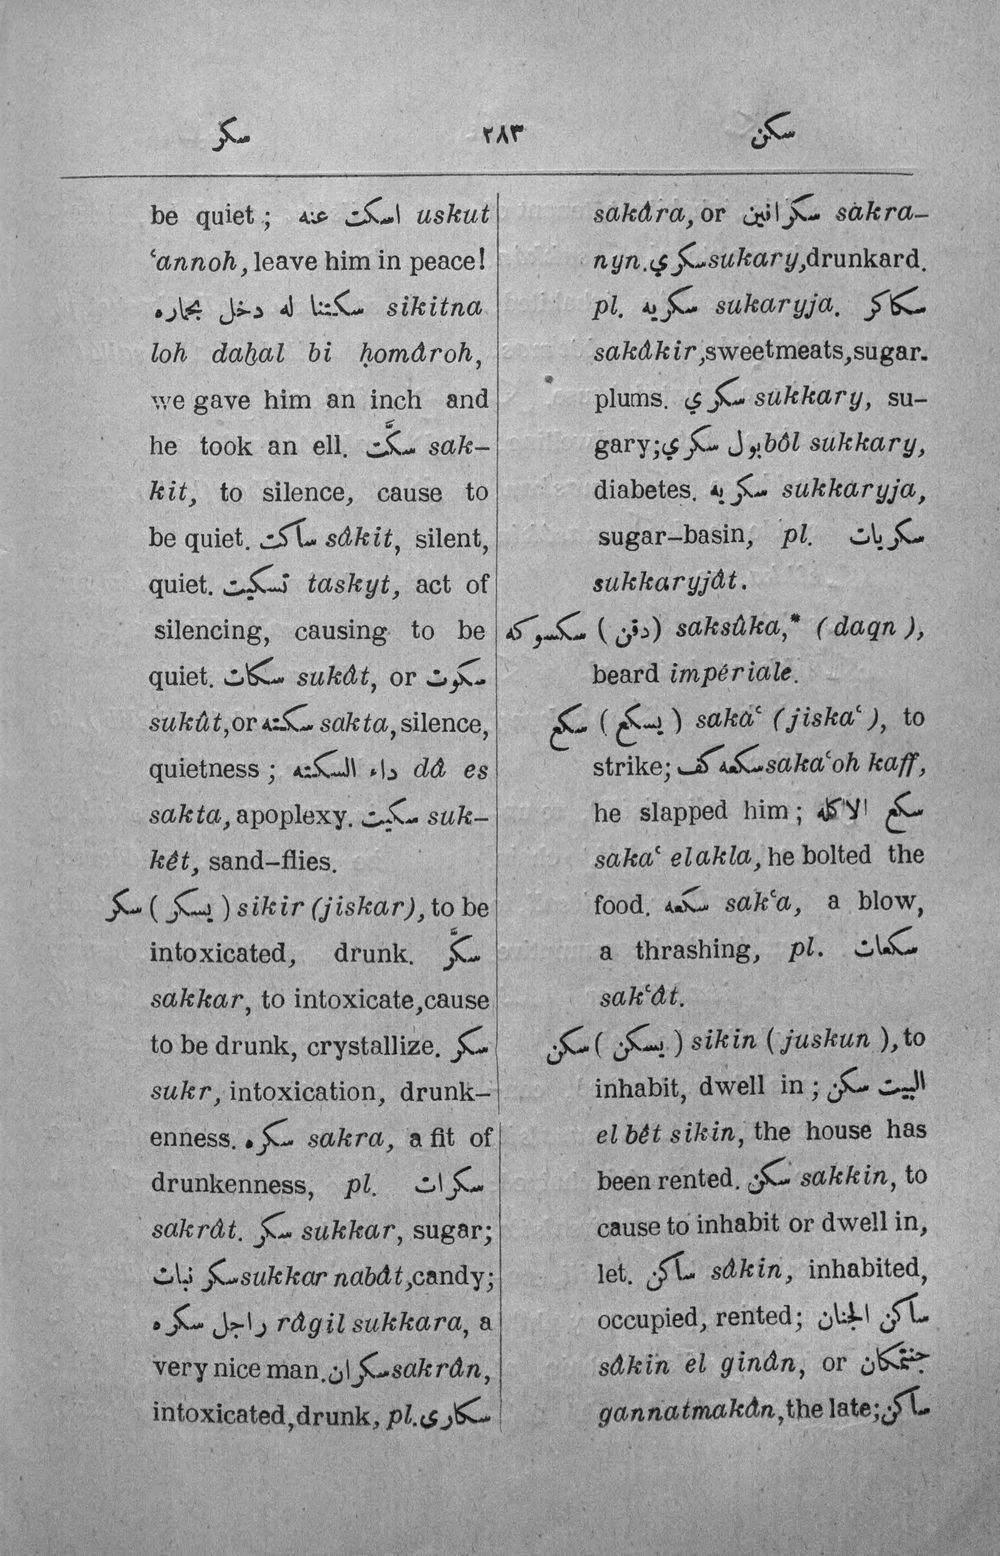 سكر ٢٨٣ سكن
be quiet; اسكت عنه uskut
ʿannoh, leave him in peace!
سكتنا له دخل بحماره sikitna
loh daḫal bi ḥomâroh,
we gave him an inch and
he took an ell. سكَّت sak-
kit, to silence, cause to
be quiet. ساكت sâkit, silent,
quiet. تسكيت taskyt, act of
silencing, causing to be
quiet. سكات sukât, or سكوت
sukût, or سكته sakta, silence,
quietness; داء السكته dâ es
sakta, apoplexy. سكيت suk-
kêt, sand-flies.
سكر (يسكر) sikir (jiskar), to be
intoxicated, drunk. سكَّر
sakkar, to intoxicate, cause
to be drunk, crystallize. سكر
sukr, intoxication, drunk-
enness. سكره sakra, a fit of
drunkenness, pl. سكرات
sakrât. سكر sukkar, sugar;
سكر نبات sukkar nabât, candy;
راجل سكره râgil sukkara, a
very nice man. سكران sakrân,
intoxicated, drunk, pl. سكارى
sakâra, or سكرانين sakra-
nyn. سكري sukary, drunkard.
pl. سكريه sukaryja. سكاكر
sakâkir, sweetmeats, sugar-
plums. سكري sukkary, su-
gary; بول سكري bôl sukkary,
diabetes. سكريه sukkaryja,
sugar-basin, pl. سكريات
sukkaryjât.
سكسوكه (دقن) saksûka,* (daqn),
beard impériale.
سكع (يسكع) sakaʿ (jiskaʿ), to
strike; سكعه كف sakaʿoh kaff,
he slapped him; سكع الاكله
sakaʿ elakla, he bolted the
food. سكعه sakʿa, a blow,
a thrashing, pl. سكعات
sakʿât.
سكن (يسكن) sikin (juskun), to
inhabit, dwell in; البيت سكن
el bêt sikin, the house has
been rented. سكن sakkin, to
cause to inhabit or dwell in,
let. ساكن sâkin, inhabited,
occupied, rented; ساكن الجنان
sâkin el ginân, or جنتمكان
gannatmakân, the late; ساكن